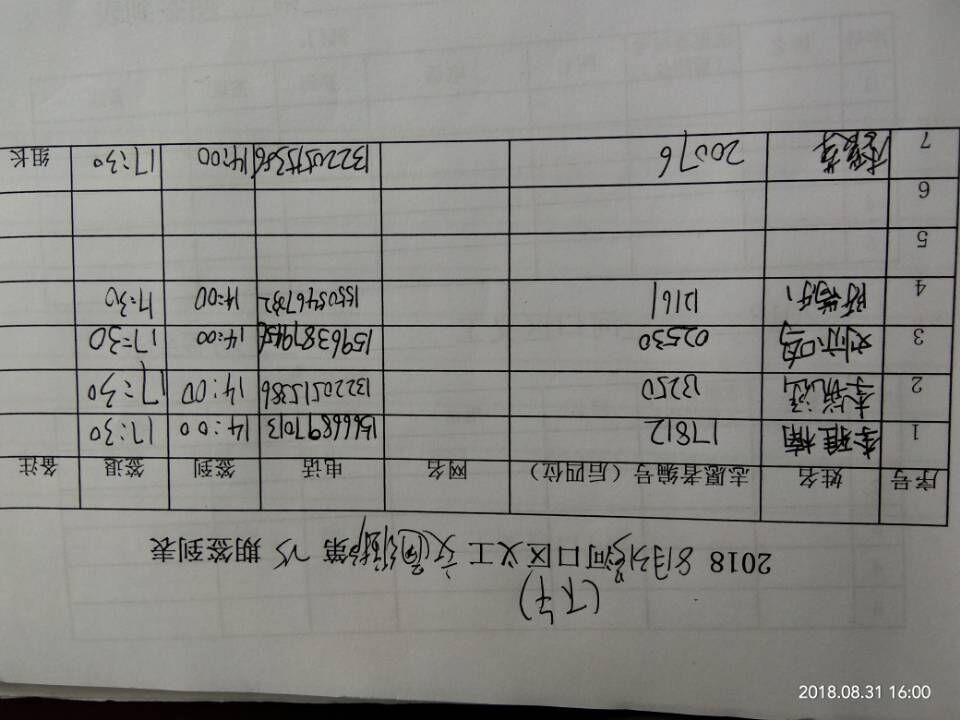 (下午)
2018 8月31日河口区义工交通维护第75期签到表
序号 姓名 志愿者编号（后四位） 网名 电话 签到 签退 备注
1 李雅楠 17812 15666897013 14:00 17:30
2 13250 13220515386 14:00 17:30
3 刘亦鸣 02530 14:00 17:30
4 12161 15505467782 14:00 17:30
5
6
7 20076 14:00 17:30 组长
2018.08.31 16:00